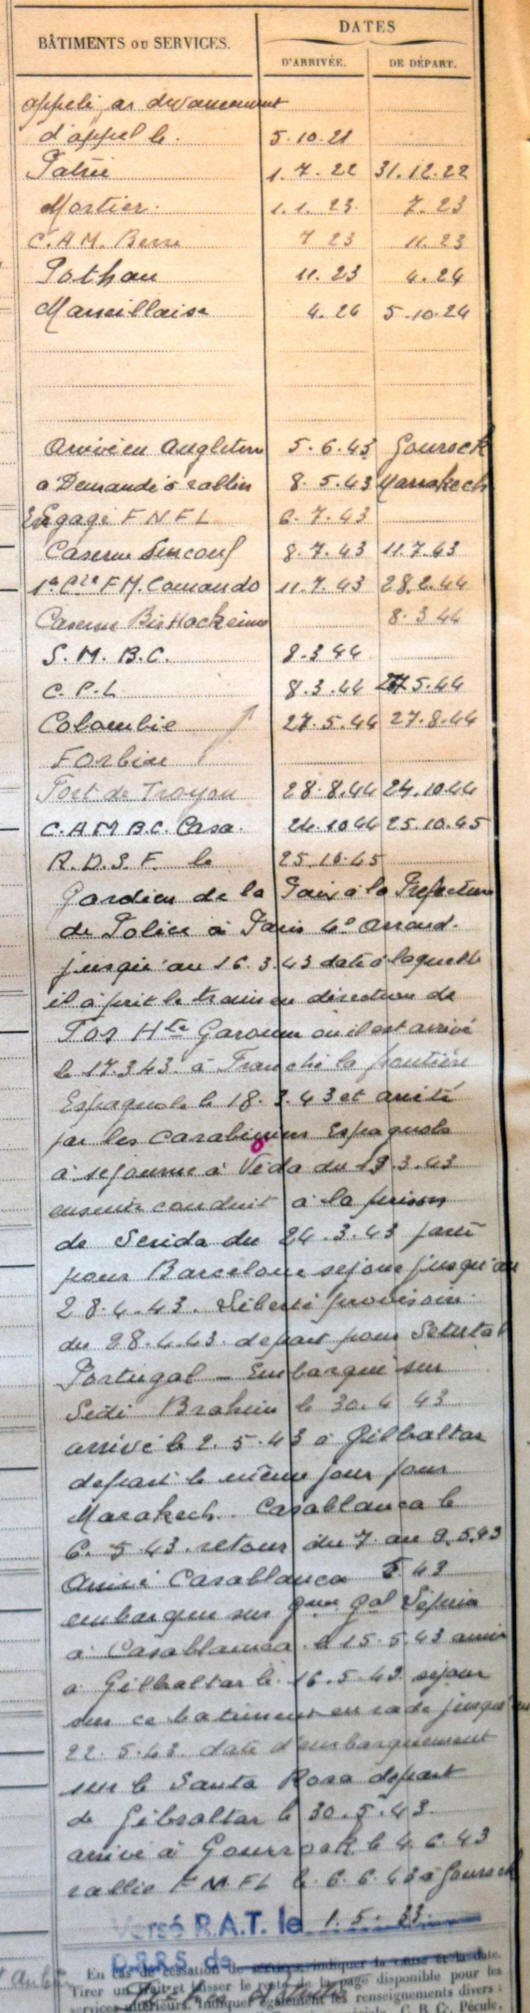 BÂTIMENTS OU SERVICES. DATES
D'ARRIVÉE. DE DÉPART.
appelé devancement
d'appel le. 5.10.21
Patrie 1.7.22 31.12.22
Mortier. 1.1.23. 7.23
C.A.M. Berre 7 23 11.23
Pothuau 11.23 4.24
Marseillaise 4.24 5.10.24
Arrivé en Angleterre 5.6.43 Gourock
a Demandé à rallier 8.5.43 Marrakech
Engagé F N F L 6.7.43
Caserne Surcouf 8.7.43 11.7.43
1ere Cie F.M. Comando 11.7.43 28.2.44
Caserne Bir Hackeim 8.3 44
S.M.B.C. 8.3 44
C.P.L 8.3.44 27.5.44
Colombie 27.5.44 27.8.44
Forbin
Fort de Troyon 28.8.44 24.10.44
C.A.M.B.C. Casa. 24.10 44 25.10.45
R.D.S.F. le 25.10.45
Gardien de la Paix à la Prefecture
de Police à Paris 4e Arrond.
jusqu'au 16.3.43 date à laquelle
il à prit le train en direction de
Hte Garonne où il est arrivé
le 17.3 43. à Franchi la frontière
Espagnole le 18.3.43 et arrêté
par les Carabiniers Espagnols
à sejourné à du 19.3.43
ensuite conduit à la prison
de du 24.3.43 parti
pour Barcelone sejour jusqu'au
28.4.43. Liberté provisoire
du 28.4.43. depart pour Setubal
Portugal - Embarqué sur
Sidi Brahim le 30.4 43
arrivé le 2.5.43 à Gilbaltar
depart le même jour pour
Marakech. Casablanca le
6.5 43. retour du 7 au 9.5.43
Arrivé Casablanca 5 43
embarqué sur Lépine
à Casablanca le 15.5.43 arrivé
à Gilbaltar le 16.5.43 sejour
sur ce batiment en rade jusqu'au
22.5.43. date d'embarquement
sur le Santa Rosa depart
de Gibraltar le 30.5.43.
arrivé à Gourrock le 4.6.43
rallié F.N.FL le 6.6.43 à Gourock
Versé R.A.T. le 1.5.33.
D.R.R.S. de
En cas de cessation de services, indiquer la cause et la date.
Tirer un trait et laisser le reste de la page disponible pour les
services intérieurs. Indiquer également les renseignements divers :